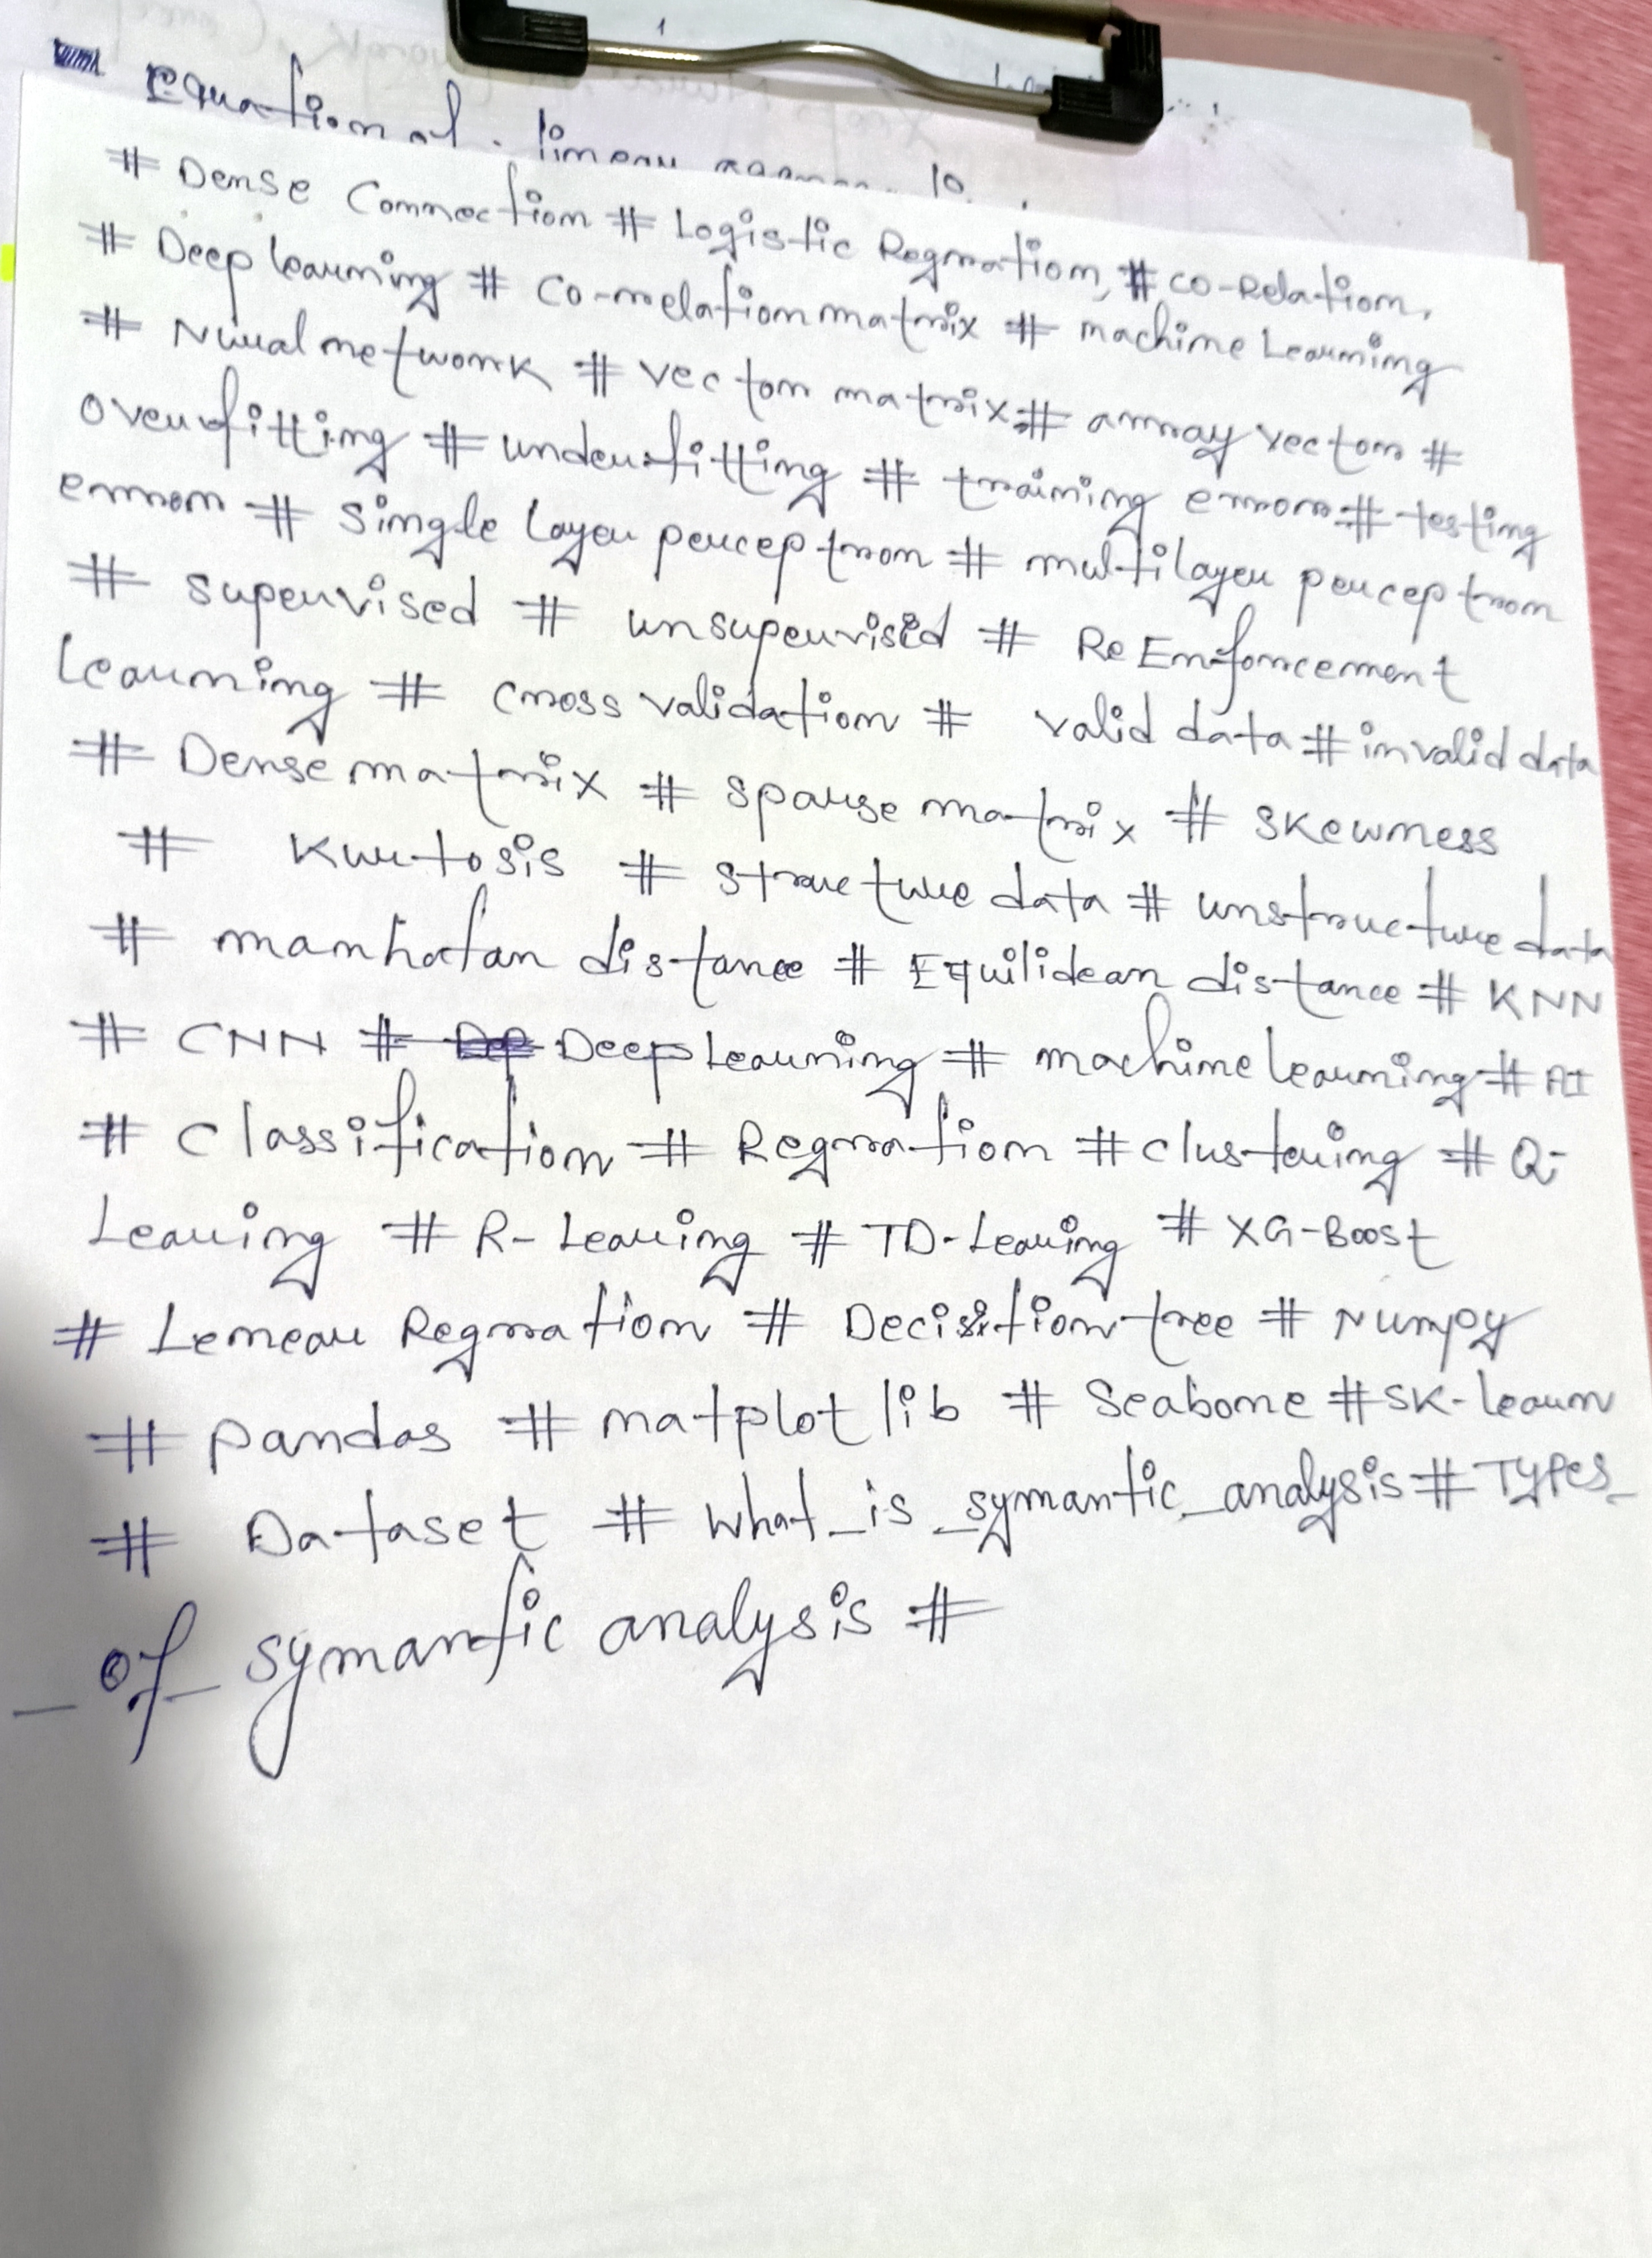 Equation of linear
# Dense Connection # Logistic Regration, # co-Relation,
# Deep learning # Co-relation matrix # machine Learning
# Nural network # vector matrix # array vector #
overfitting # underfitting # training error # testing
error # single layer perceptron # multilayer perceptron
# supervised # unsupervised # ReEnforcement
learning # cross validation # valid data # invalid data
# Dense matrix # sparse matrix # skewness
# Kurtosis # structure data # unstructure data
# manhatan distance # Equilidean distance # KNN
# CNN # Deep Learning # machine learning # AI
# Classification # Regration # clustering # Q-
Learing # R-Learing # TD-Learing # XG-Boost
# Lenear Regration # Decistion tree # Numpy
# pandas # matplot lib # Seabone # SK-learn
# Dataset # what_is_symantic_analysis # Types_
_of_symantic analysis #